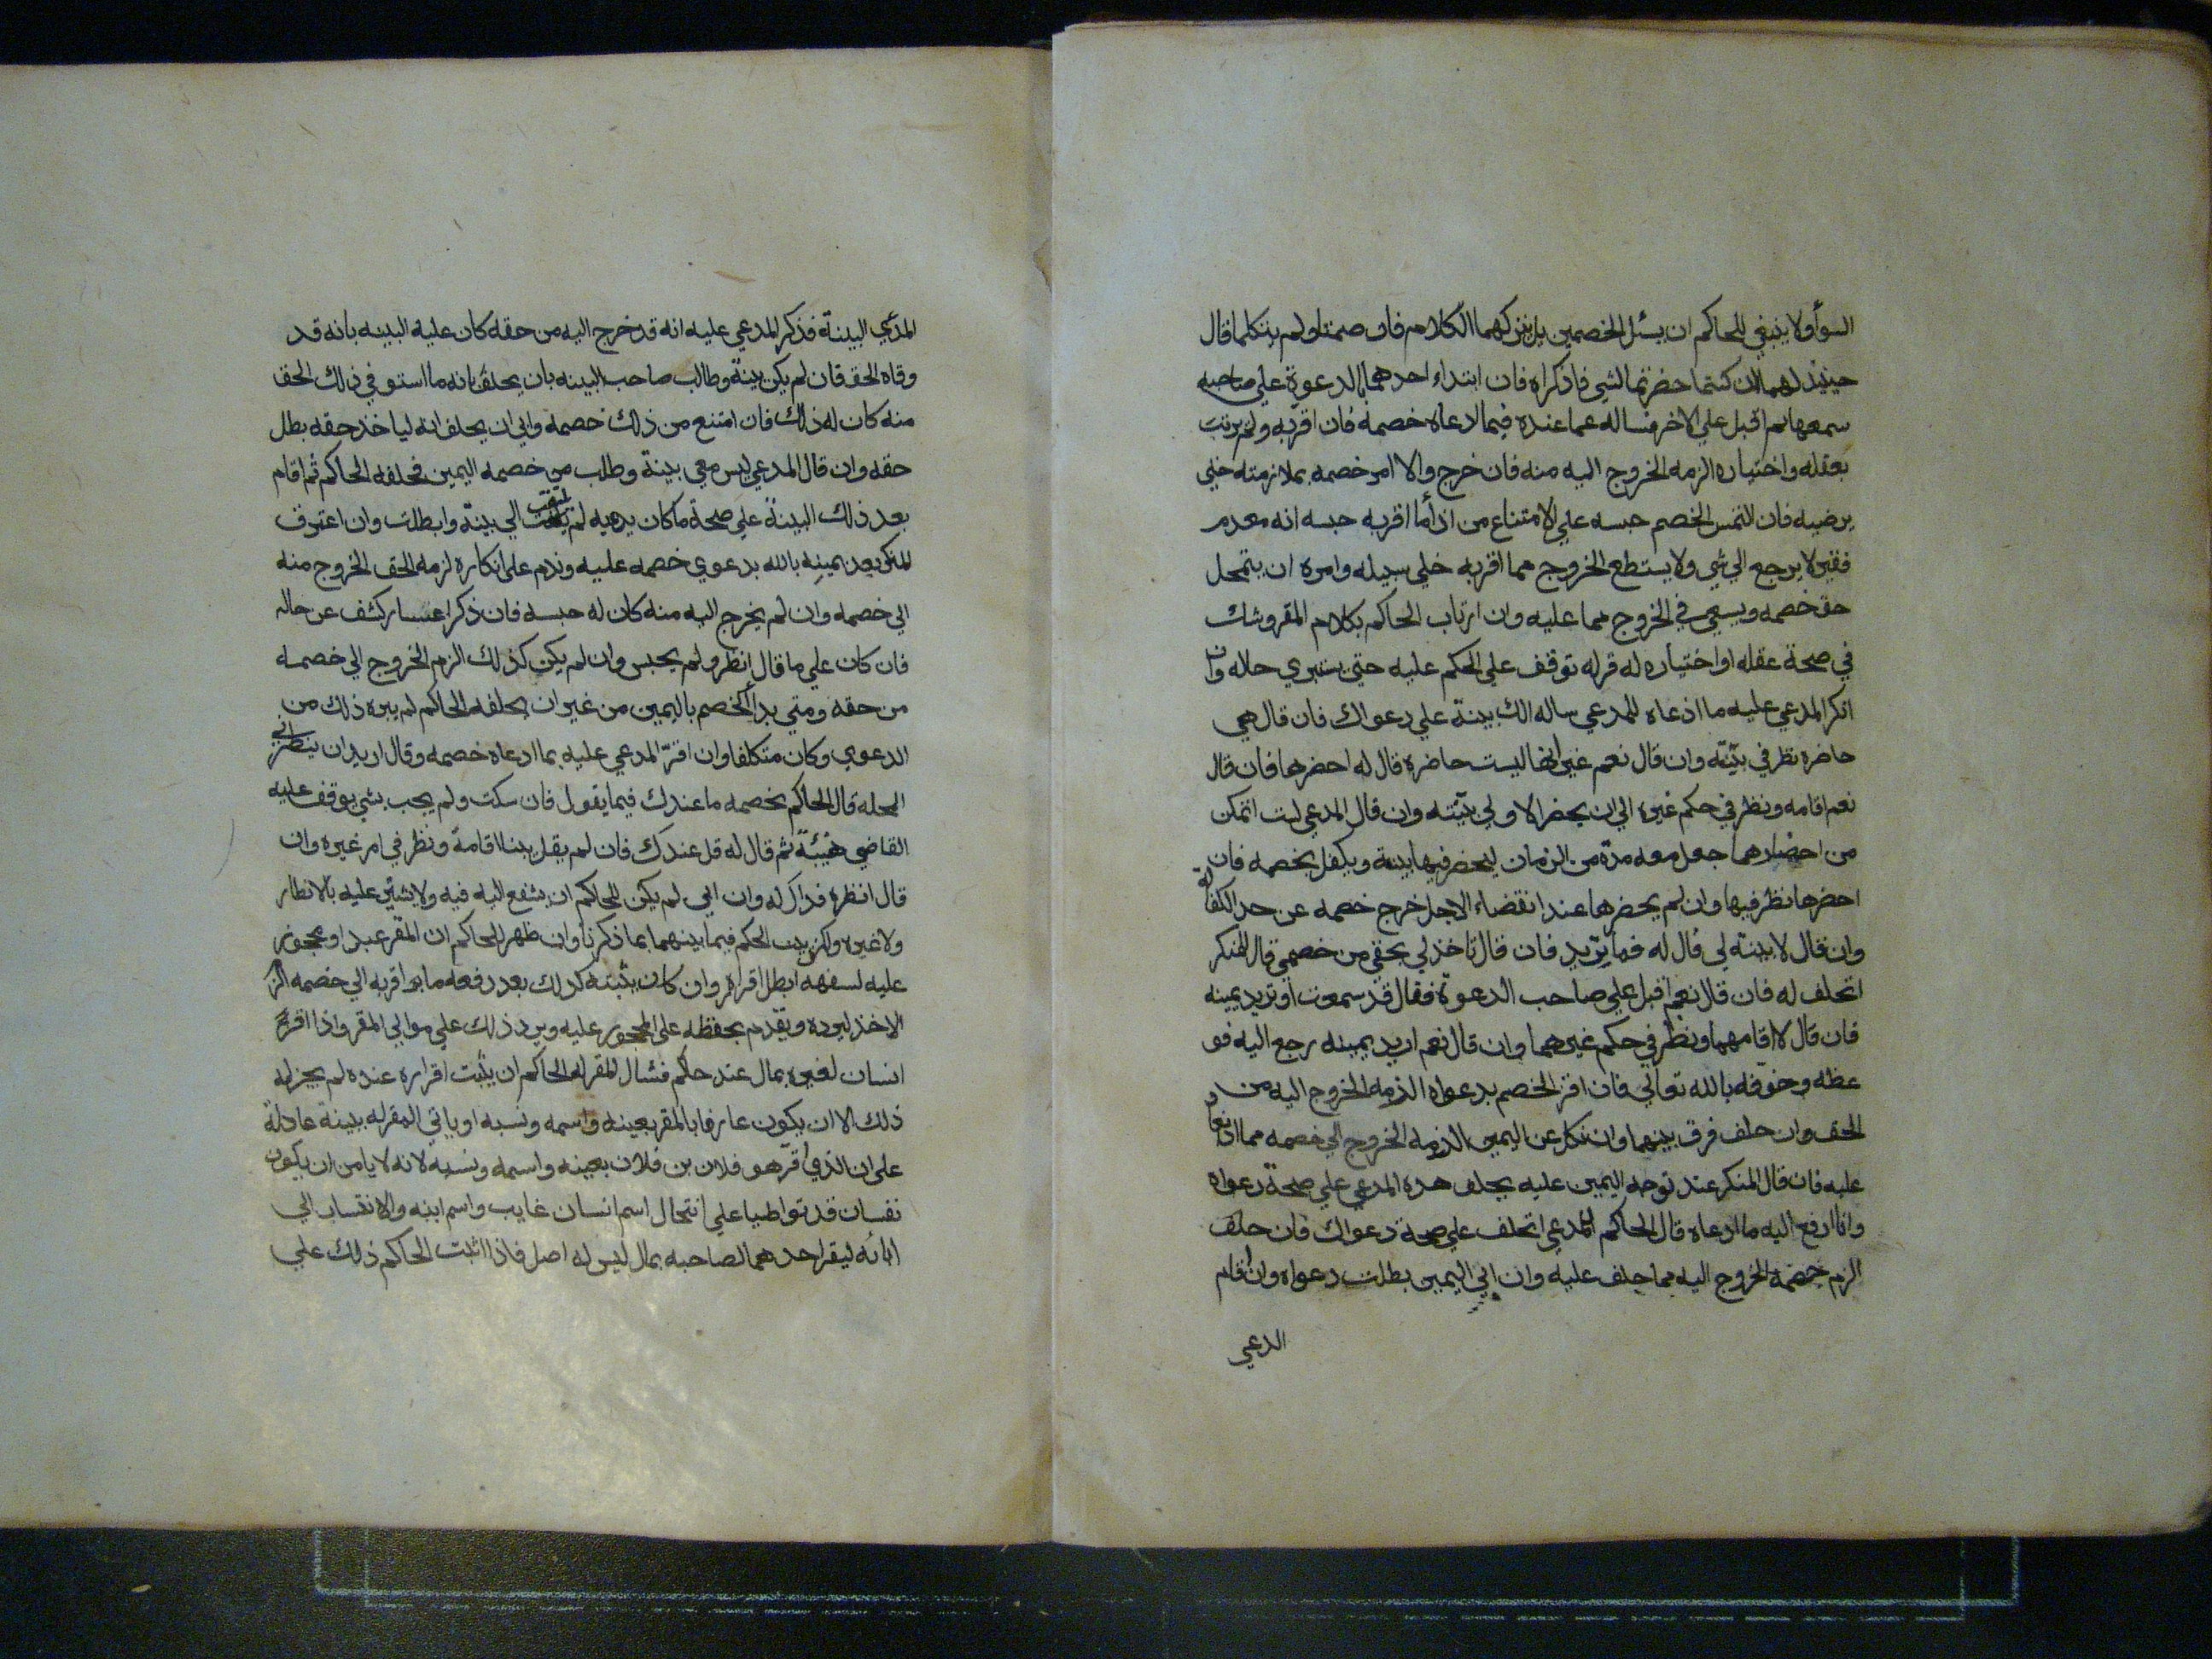 السوأ ولا ينبغي للحاكم ان يسئل الخصمين بل يتركهما الكلام فان صمتا ولم يتكلما قال
حينئذ لهما ان كنتما حضرتما لشي فاذكراه فان ابتداء احدهما بالدعوة علي صاحبه
سمعها ثم اقبل علي الاخر فساله عما عنده فيما ادعاه خصمه فان اقر به ولم يرتب
بعقله واختياره الزمه الخروج اليه منه فان خرج والا امر خصمه بملازمته حتي
يرضيه فان التمس الخصم حبسه علي الامتناع من اداما اقر به حبسه انه معدم
فقير لا يرجع الي شي ولا يستطع الخروج مما اقر به خلي سبيله وامره ان يتمحل
حق خصمه ويسعي في الخروج مما عليه وان ارتاب الحاكم بكلام المقر وشك
في صحة عقله او اختياره له قرله توقف علي الحكم عليه حتي يستبري حاله وان
انكر المدعي عليه ما ادعاه المدعي ساله الك بينة علي دعواك فان قال هي
حاضرة نظر في بينته وان قال نعم غير انها ليست حاضرة قال له احضرها فان قال
نعم اقامه ونظر في حكم غيره الي ان يحضر الاولي بينته وان قال المدعي لست اتمكن
من احضارها جعل معه مدة من الزمان ليحضر فيها بينة ويكفل بخصمه فان
احضرها نظر فيها وان لم يحضرها عند انقضاء الاجل خرج خصمه عن حد الكفالة
وان قال لا بينة لي قال له فما تريد فان قال تاخذ لي بحقي من خصمي قال للمنكر
اتحلف له فان قال نعم اقبل علي صاحب الدعوة فقال قد سمعت او تريد يمينه
فان قال لا اقامهما ونظر في حكم غيرهما وان قال نعم اريد يمينه رجع اليه فو
عظه وخوفه بالله تعالي فان اقر الخصم بدعواه الزمه الخروج اليه من
الحق وان حلف فرق بينهما وان نكل عن اليمين الزمه الخروج الي خصمه مما ادعا
عليه فان قال المنكر عند توجه اليمين عليه يحلف هذه المدعي علي صحة دعواه
وانا ارفع اليه ما ادعاه قال الحاكم للمدعي اتحلف علي صحة دعواك فان حلف
الزم خصمه الخروج اليه مما حلف عليه وان ابي اليمين بطلت دعواه وان اقام
الدعي
المدعي البينة فذكر المدعي عليه انه قد خرج اليه من حقه كان عليه البينه بانه قد
وقاه الحق فان لم يكن بينة وطالب صاحب البينه بان يحلف بانه ما استوفي ذلك الحق
منه كان له ذلك فان امتنع من ذلك خصمه وابي ان يحلف انه لياخذ حقه بطل
حقه وان قال المدعي ليس معي بينة وطلب من خصمه اليمين فحلفه الحاكم ثم اقام
بعد ذلك البينة علي صحة ما كان يدعيه لم يلتفت الي بينة وابطلت وان اعترف
المنكر بعد يمينه بالله بدعوي خصمه عليه وندم علي انكاره لزمه الحق الخروج منه
الي خصمه وان لم يخرج اليه منه كان له حبسه فان ذكر اعسار كشف عن حاله
فان كان علي ما قال انظر ولم يحبس وان لم يكن كذلك الزم الخروج الي خصمه
من حقه ومتي بدأ الخصم باليمين من غير ان يحلفه الحاكم لم يبره ذلك من
الدعوي وكان متكلفا وان اقر المدعي عليه بما ادعاه خصمه وقال اريد ان ينظرني
المحله قال الحاكم بخصمه ما عندك فيما يقول فان سكت ولم يجب بشي يوقف عليه
القاضي ثم قال له قل عندك فان لم يقل بينا اقامة ونظر في امر غيره وان
قال انظره فذاك له وان ابي لم يكن للحاكم ان يشفع اليه فيه ولا يشير عليه بالانظار
ولا غيره ولكن يبت الحكم فيما بينهما بما ذكرنا وان ظهر للحاكم ان المقر عبد او محجور
عليه لسفهه ابطل اقراره وان كان يثبته كذلك بعد دفعه ما بو اقر به الي خصمه الزم
الاخذ ليوده ويقدم بحفظه علي المحجور عليه ويرد ذلك علي موالي المقر واذا اقر
انسان لغيره بمال عند حاكم فسال المقر له الحاكم ان يثبت اقراره عنده لم يجز له
ذلك الا ان يكون عارفا بالمقر بعينه واسمه ونسبه او ياتي المقر له ببينة عادلة
علي ان الذي اقر هو فلان بن فلان بعينه واسمه ونسبه لانه لا يامن ان يكون
نفسان قد تواطيا علي انتحال اسم انسان غايب واسم ابنه والانتساب الي
ابائه ليقر احدهما لصاحبه بمال ليس له اصل فاذا اثبت الحاكم ذلك علي